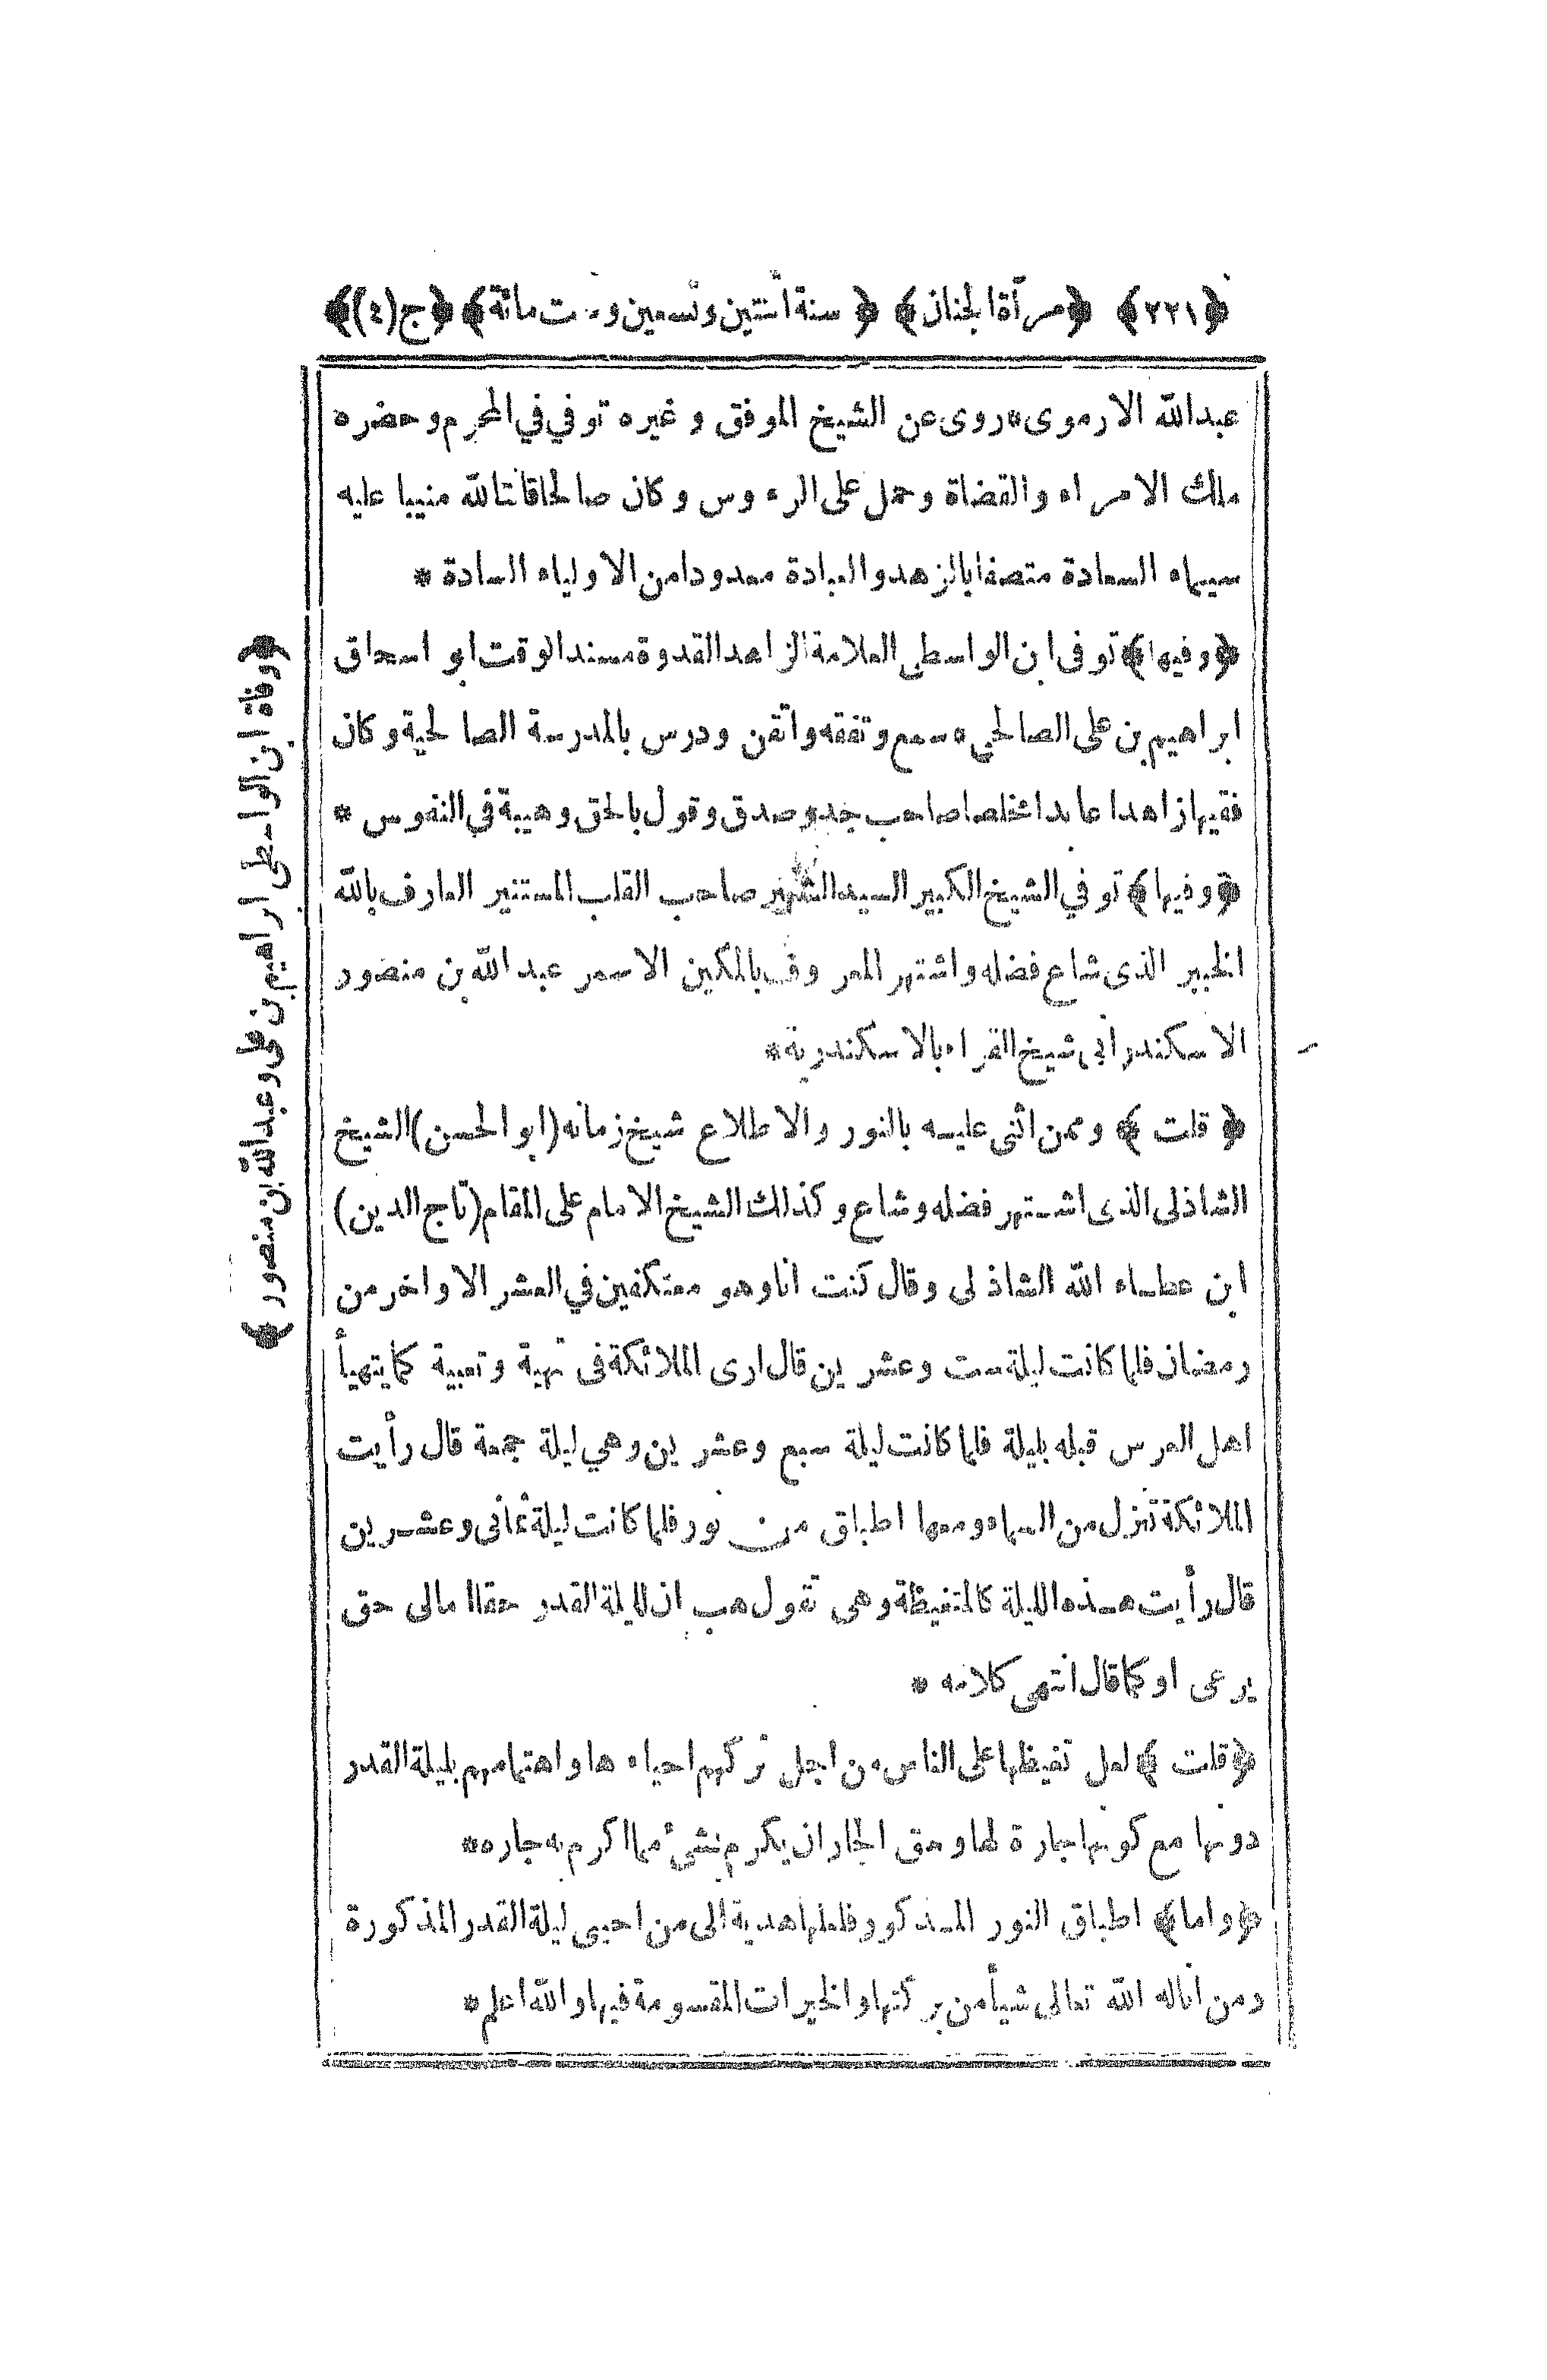 ﴿٢٢١﴾ ﴿مرآة الجنان﴾ ﴿سنة اثنتين وتسعين وست مائة﴾ ﴿ج(٤)﴾
عبدالله الارموى*روى عن الشيخ الموفق و غيره توفي في المحرم و حضره
ملك الامراء والقضاة وحمل على الرءوس و كان صالحا قانتا لله منيبا عليه
سيماء السعادة متصفا بالزهد والعبادة معدودا من الاولياء السادة *
﴿وفيها﴾ توفى ابن الواسطى العلامة الزاهد القدوة مسند الوقت ابو اسحاق
ابراهيم بن على الصالحى*سمع وتفقه واتقن ودرس بالمدرسة الصالحية و كان
فقيها زاهدا عابدا مخلصا صاحب جد وصدق وقول بالحق وهيبة في النفوس *
﴿وفيها﴾ توفي الشيخ الكبير السيد الشهير صاحب القلب المستنير العارف بالله
الخبير الذى شاع فضله واشتهر المعروف بالمكين الاسمر عبدالله بن منصور
الاسكندرانى شيخ القراء بالاسكندرية*
﴿قلت﴾ وممن اثنى عليه بالنور والاطلاع شيخ زمانه (ابو الحسن) الشيخ
الشاذلى الذى اشتهر فضله وشاع و كذلك الشيخ الامام على المقام (تاج الدين)
ابن عطاء الله الشاذلى وقال كنت انا وهو معتكفين في العشر الاواخر من
رمضان فلما كانت ليلة ست وعشرين قال ارى الملائكة فى تهية وتعبية كما يتهيأ
اهل العرس قبله بليلة فلما كانت ليلة سبع وعشرين وهي ليلة جمعة قال رأيت
الملائكة تنزل من السماء ومعها اطباق من نور فلما كانت ليلة ثمانى وعشرين
قال رأيت هذه الليلة كالمتغيظة وهى تقول هب ان لليلة القدر حقا اما لى حق
يرعى او كما قال انتهى كلامه *
﴿قلت﴾ لعل تغيظها على الناس من اجل تركهم احياءها واهتمامهم بليلة القدر
دونها مع كونها جارة لها وحق الجار ان يكرم بشئ مما اكرم به جاره*
﴿واما﴾ اطباق النور المذكور فلعلها هدية الى من احيى ليلة القدر المذكورة
ومن اناله الله تعالى شيأ من بركتها والخيرات المقسومة فيها والله اعلم*
﴿وفاة ابن الواسطى ابراهيم بن على وعبدالله بن منصور﴾